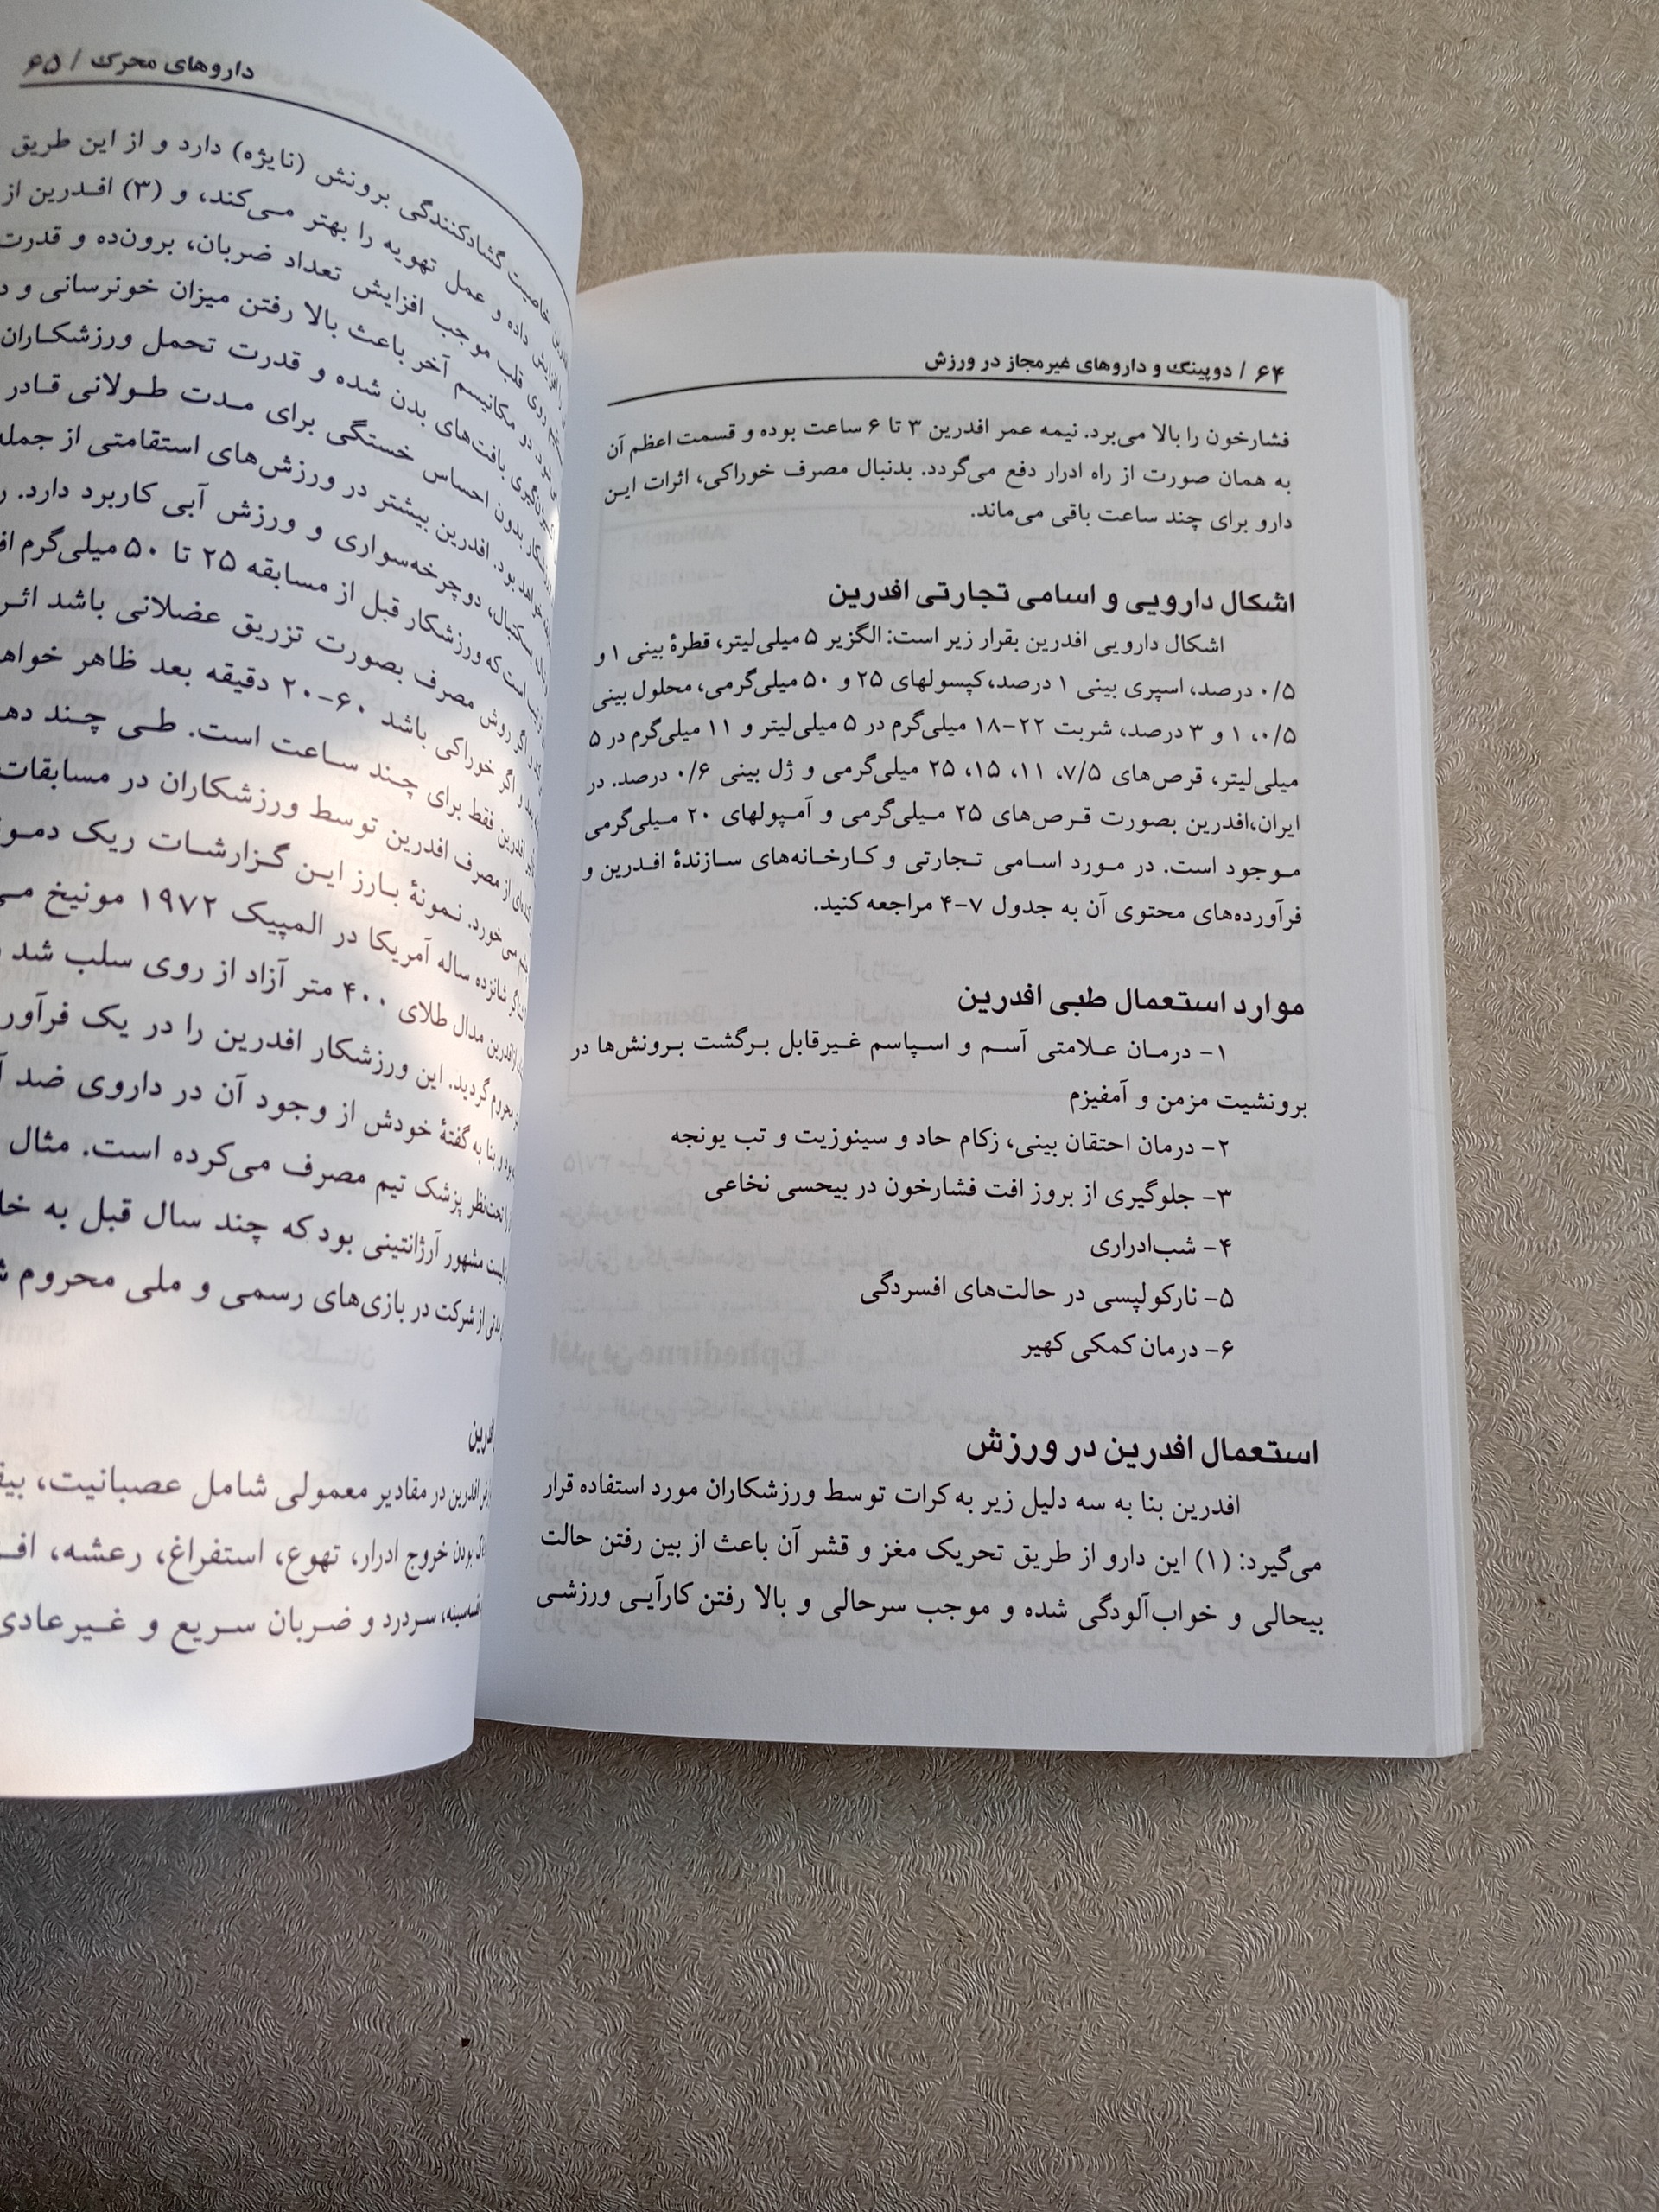 ۶۴ / دوپینگ و داروهای غیرمجاز در ورزش
فشارخون را بالا می‌برد. نیمه عمر افدرین ۳ تا ۶ ساعت بوده و قسمت اعظم آن
به همان صورت از راه ادرار دفع می‌گردد. بدنبال مصرف خوراکی، اثرات این
دارو برای چند ساعت باقی می‌ماند.
اشکال دارویی و اسامی تجارتی افدرین
اشکال دارویی افدرین بقرار زیر است: الگزیر ۵ میلی‌لیتر، قطرهٔ بینی ۱ و
۰/۵ درصد، اسپری بینی ۱ درصد، کپسولهای ۲۵ و ۵۰ میلی‌گرمی، محلول بینی
۰/۵، ۱ و ۳ درصد، شربت ۲۲-۱۸ میلی‌گرم در ۵ میلی‌لیتر و ۱۱ میلی‌گرم در ۵
میلی‌لیتر، قرص‌های ۷/۵، ۱۱، ۱۵، ۲۵ میلی‌گرمی و ژل بینی ۰/۶ درصد. در
ایران،افدرین بصورت قرص‌های ۲۵ میلی‌گرمی و آمپولهای ۲۰ میلی‌گرمی
موجود است. در مورد اسامی تجارتی و کارخانه‌های سازندهٔ افدرین و
فرآورده‌های محتوی آن به جدول ۷-۴ مراجعه کنید.
موارد استعمال طبی افدرین
۱- درمان علامتی آسم و اسپاسم غیرقابل برگشت برونش‌ها در
برونشیت مزمن و آمفیزم
۲- درمان احتقان بینی، زکام حاد و سینوزیت و تب یونجه
۳- جلوگیری از بروز افت فشارخون در بیحسی نخاعی
۴- شب‌ادراری
۵- نارکولپسی در حالت‌های افسردگی
۶- درمان کمکی کهیر
استعمال افدرین در ورزش
افدرین بنا به سه دلیل زیر به کرات توسط ورزشکاران مورد استفاده قرار
می‌گیرد: (۱) این دارو از طریق تحریک مغز و قشر آن باعث از بین رفتن حالت
بیحالی و خواب‌آلودگی شده و موجب سرحالی و بالا رفتن کارآیی ورزشی
داروهای محرک / ۶۵
خاصیت گشادکنندگی برونش (نایژه) دارد و از این طریق
افزایش داده و عمل تهویه را بهتر می‌کند، و (۳) افدرین از
روی قلب موجب افزایش تعداد ضربان، برون‌ده و قدرت
دو مکانیسم آخر باعث بالا رفتن میزان خونرسانی و
بافت‌های بدن شده و قدرت تحمل ورزشکاران
بدون احساس خستگی برای مدت طولانی قادر
خواهد بود. افدرین بیشتر در ورزش‌های استقامتی از جمله
بسکتبال، دوچرخه‌سواری و ورزش آبی کاربرد دارد.
است که ورزشکار قبل از مسابقه ۲۵ تا ۵۰ میلی‌گرم
اگر روش مصرف بصورت تزریق عضلانی باشد
و اگر خوراکی باشد ۶۰-۲۰ دقیقه بعد ظاهر
افدرین فقط برای چند ساعت است. طی چند
از مصرف افدرین توسط ورزشکاران در مسابقات
می‌خورد. نمونهٔ بارز این گزارشات ریک
شانزده ساله آمریکا در المپیک ۱۹۷۲ مونیخ
افدرین مدال طلای ۴۰۰ متر آزاد از روی سلب شد
محروم گردید. این ورزشکار افدرین را در یک
بود و بنا به گفتهٔ خودش از وجود آن در داروی ضد
تحت‌نظر پزشک تیم مصرف می‌کرده است. مثال
مشهور آرژانتینی بود که چند سال قبل به
از شرکت در بازی‌های رسمی و ملی محروم
افدرین در مقادیر معمولی شامل عصبانیت،
بودن خروج ادرار، تهوع، استفراغ، رعشه،
سردرد و ضربان سریع و غیرعادی